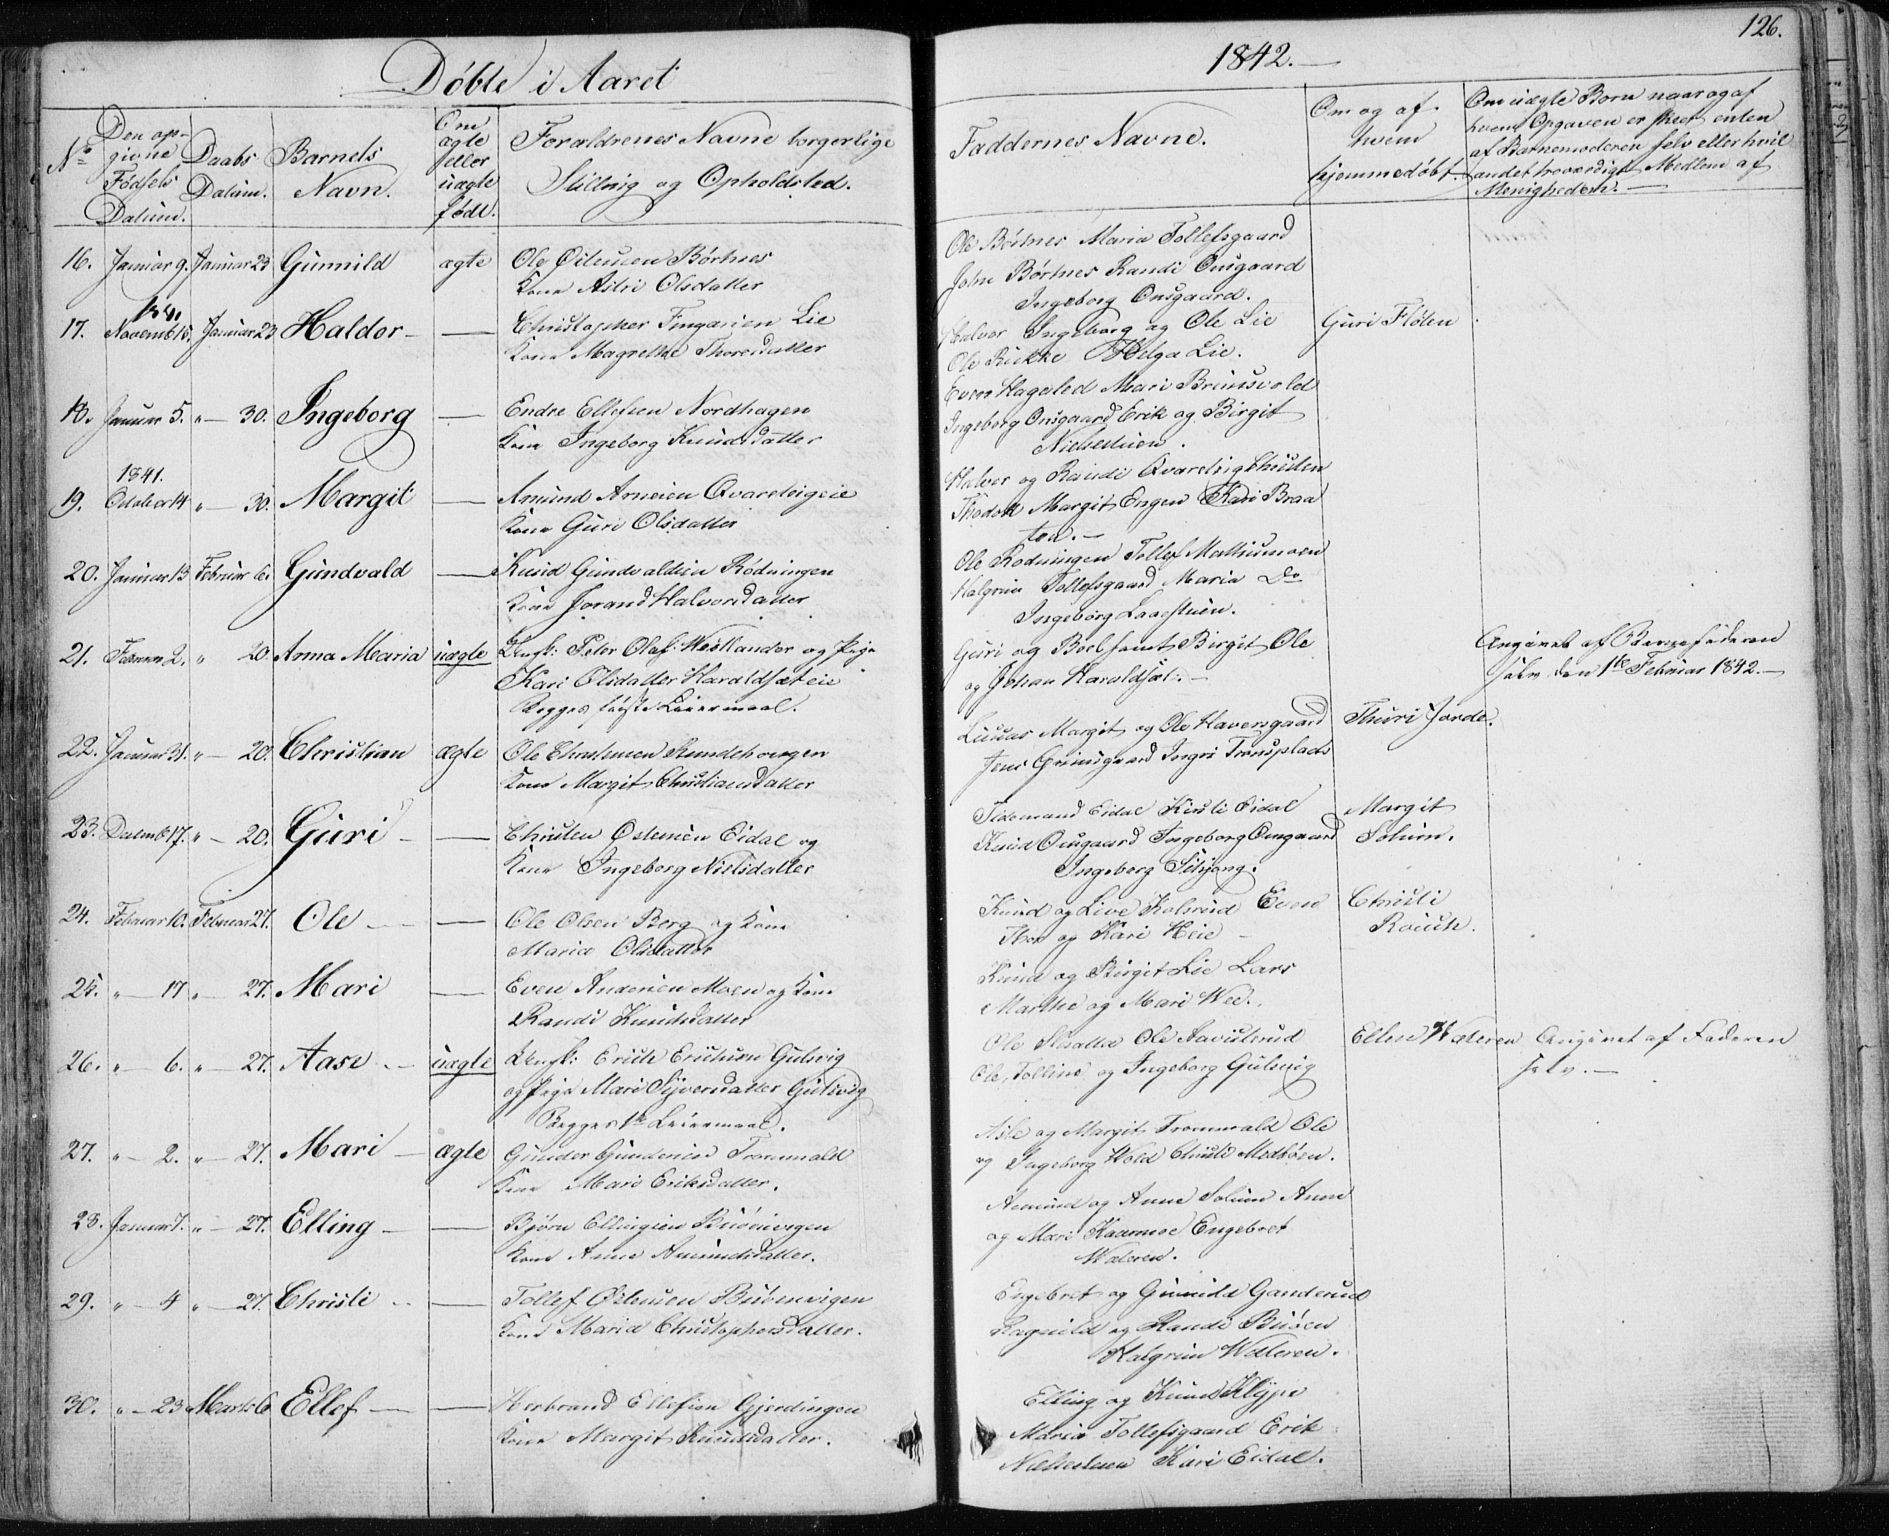 126.
Døbte i Aaret
1842.
No
Den op-
givne
Fødsels
Datum.
Daabs
Datum.
Barnets
Navn.
Om
ægte
eller
uægte
født.
Forældrenes Navne borgerlige
Stilling og Opholdsted.
Faddernes Navne.
Om og af
hvem
hjemmedøbt.
Om uægte Børn naar og af
hvem Opgaven er skeet enten
af Barnemoderen selv eller hvil
andet troværdigt Medlem af
Menigheden.
16. Januar 9. Januar 23 Gunnild ægte Ole Østensen Børtnes
Kone Astri Olsdatter
Ole Børtnes Maria Tollefsgaard
John Børtnes Randi Onsgaard
Ingeborg Onsgaard.
1841
17. Novemb 15. Januar 23 Haldor — Christopher Fingarsen Lie
Kone Magrethe Thoresdatter
Halvor Ingeborg og Ole Lie
Ole Helga Lie.
Guri Fløten
18. Januar 5. " — 30. Ingeborg — Endre Ellefsen Nordhagen
Kone Ingeborg Knudsdatter
Even Hagaled Mari Brunsvold
Ingeborg Onsgaard Erik og Birgit
Nielsstuen.
1841.
19. October 14 " — 30. Margit — Amund Arnesen Qvarelvigeie
Kone Guri Olsdatter
Halvor og Randi Qvarelvig Christen
Margit Engen Kari Braa
ten. —
20. Januar 13 Februar 6. Gundvald — Knud Gundvaldsen Rødningen
Kone Jorand Halvorsdatter
Ole Rodningen Tollef
Halgrim Tollefsgaard Maria Do
Ingeborg
21. Februar 2. " 20 Anna Maria uægte Ungk: Peter Olaf: Westlander og Pige
Kari Olsdatter Haraldsæt eie
Begges første Leiermaal.
Guri og Birgit Ole
og Johan Haraldsæt. —
Angivet af Barnefaderen
selv den 1te Februar 1842. —
22. Januar 31. " — 20. Christian ægte Ole
Kone Margit Christiansdatter
Margit og Ole Haversgaard
Jens Grimsgaard Ingri
Thuri Jorde.
23. Decemb 17. " — 20. Guri — Christen Østensen Eidal og
Kone Ingeborg Nielsdatter
Tidemand Eidal Kirsti Eidal
Knud Onsgaard Ingeborg Onsgaard
Ingeborg
Margit
Solum.
24. Februar 10. Februar 27. Ole — Ole Olsen Berg og Kone
Maria Olsdatter
Knud og Live Kolsrud Even
Thor og Kari Heie
Christi
25. " — 17 " — 27. Mari — Even Andersen Moen og Kone
Randi Knudsdatter
Knud og Birgit Lie Lars
Marthe og Mari Wee.
26. " — 6. " — 27. Aase — uægte Ungk: Erich Erichsen Gulsvig
og Pige Mari Syversdatter Gulsvig
Begges 1te Leiermaal.
Ole Ole Aavestrud
Ole, Tolline og Ingeborg Gulsvig
Ellen Wæteren
Angivet af Faderen
selv. —
27. " — 2. " — 27. Mari — ægte Gunder Gundersen Trommald
Kone Mari Eriksdatter.
Asle og Margit Trommald Ole
og Ingeborg Wold Christi
28. Januar 7. " — 27. Elling — Bjørn Ellingsen
Kone Anne Amundsdatter.
Amund og Anne Solum Anne
og Mari Engebret
Wæteren.
29. " — 4 " — 27. Christi — Tollef Østensen
Kone Maria Christophersdatter.
Engebret og Gunild Ganderud
Ragnild og Randi Buøen
Halgrim Wæteren.
30. " — 23 Marts 6 Ellef — Herbrand Ellefsen Gjerdingen
Kone Margit Knudsdatter.
Elling og Knud Klype
Maria Tollefsgaard Erik
Nielsstuen Kari Eidal.